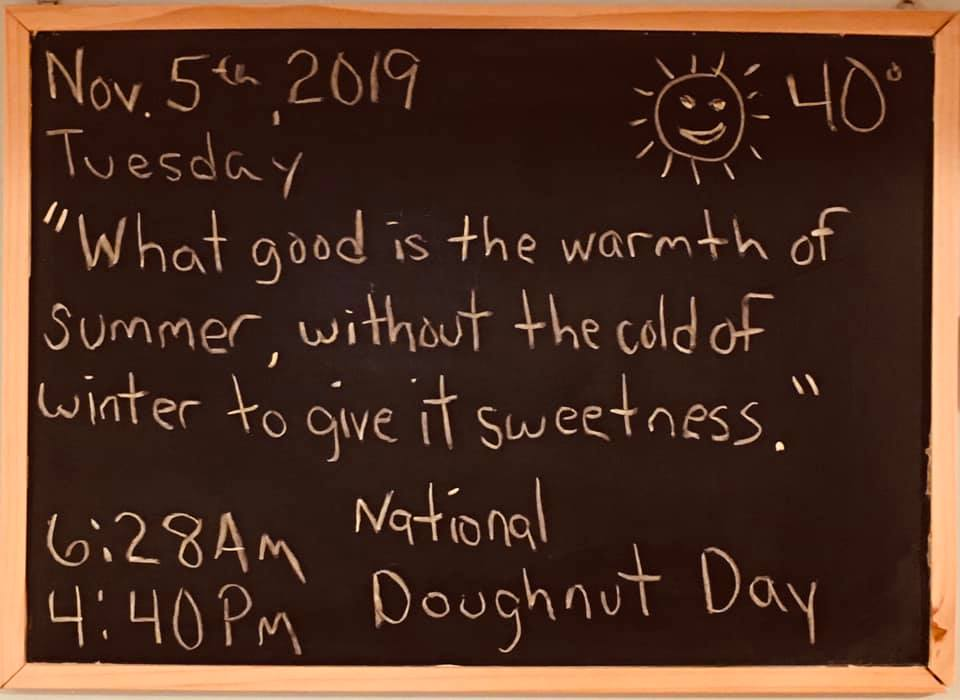 Nov. 5th, 2019
40°
Tuesday
"What good is the warmth of
summer, without the cold of
winter to give it sweetness."
6:28Am
National
4:40Pm
Doughnut Day